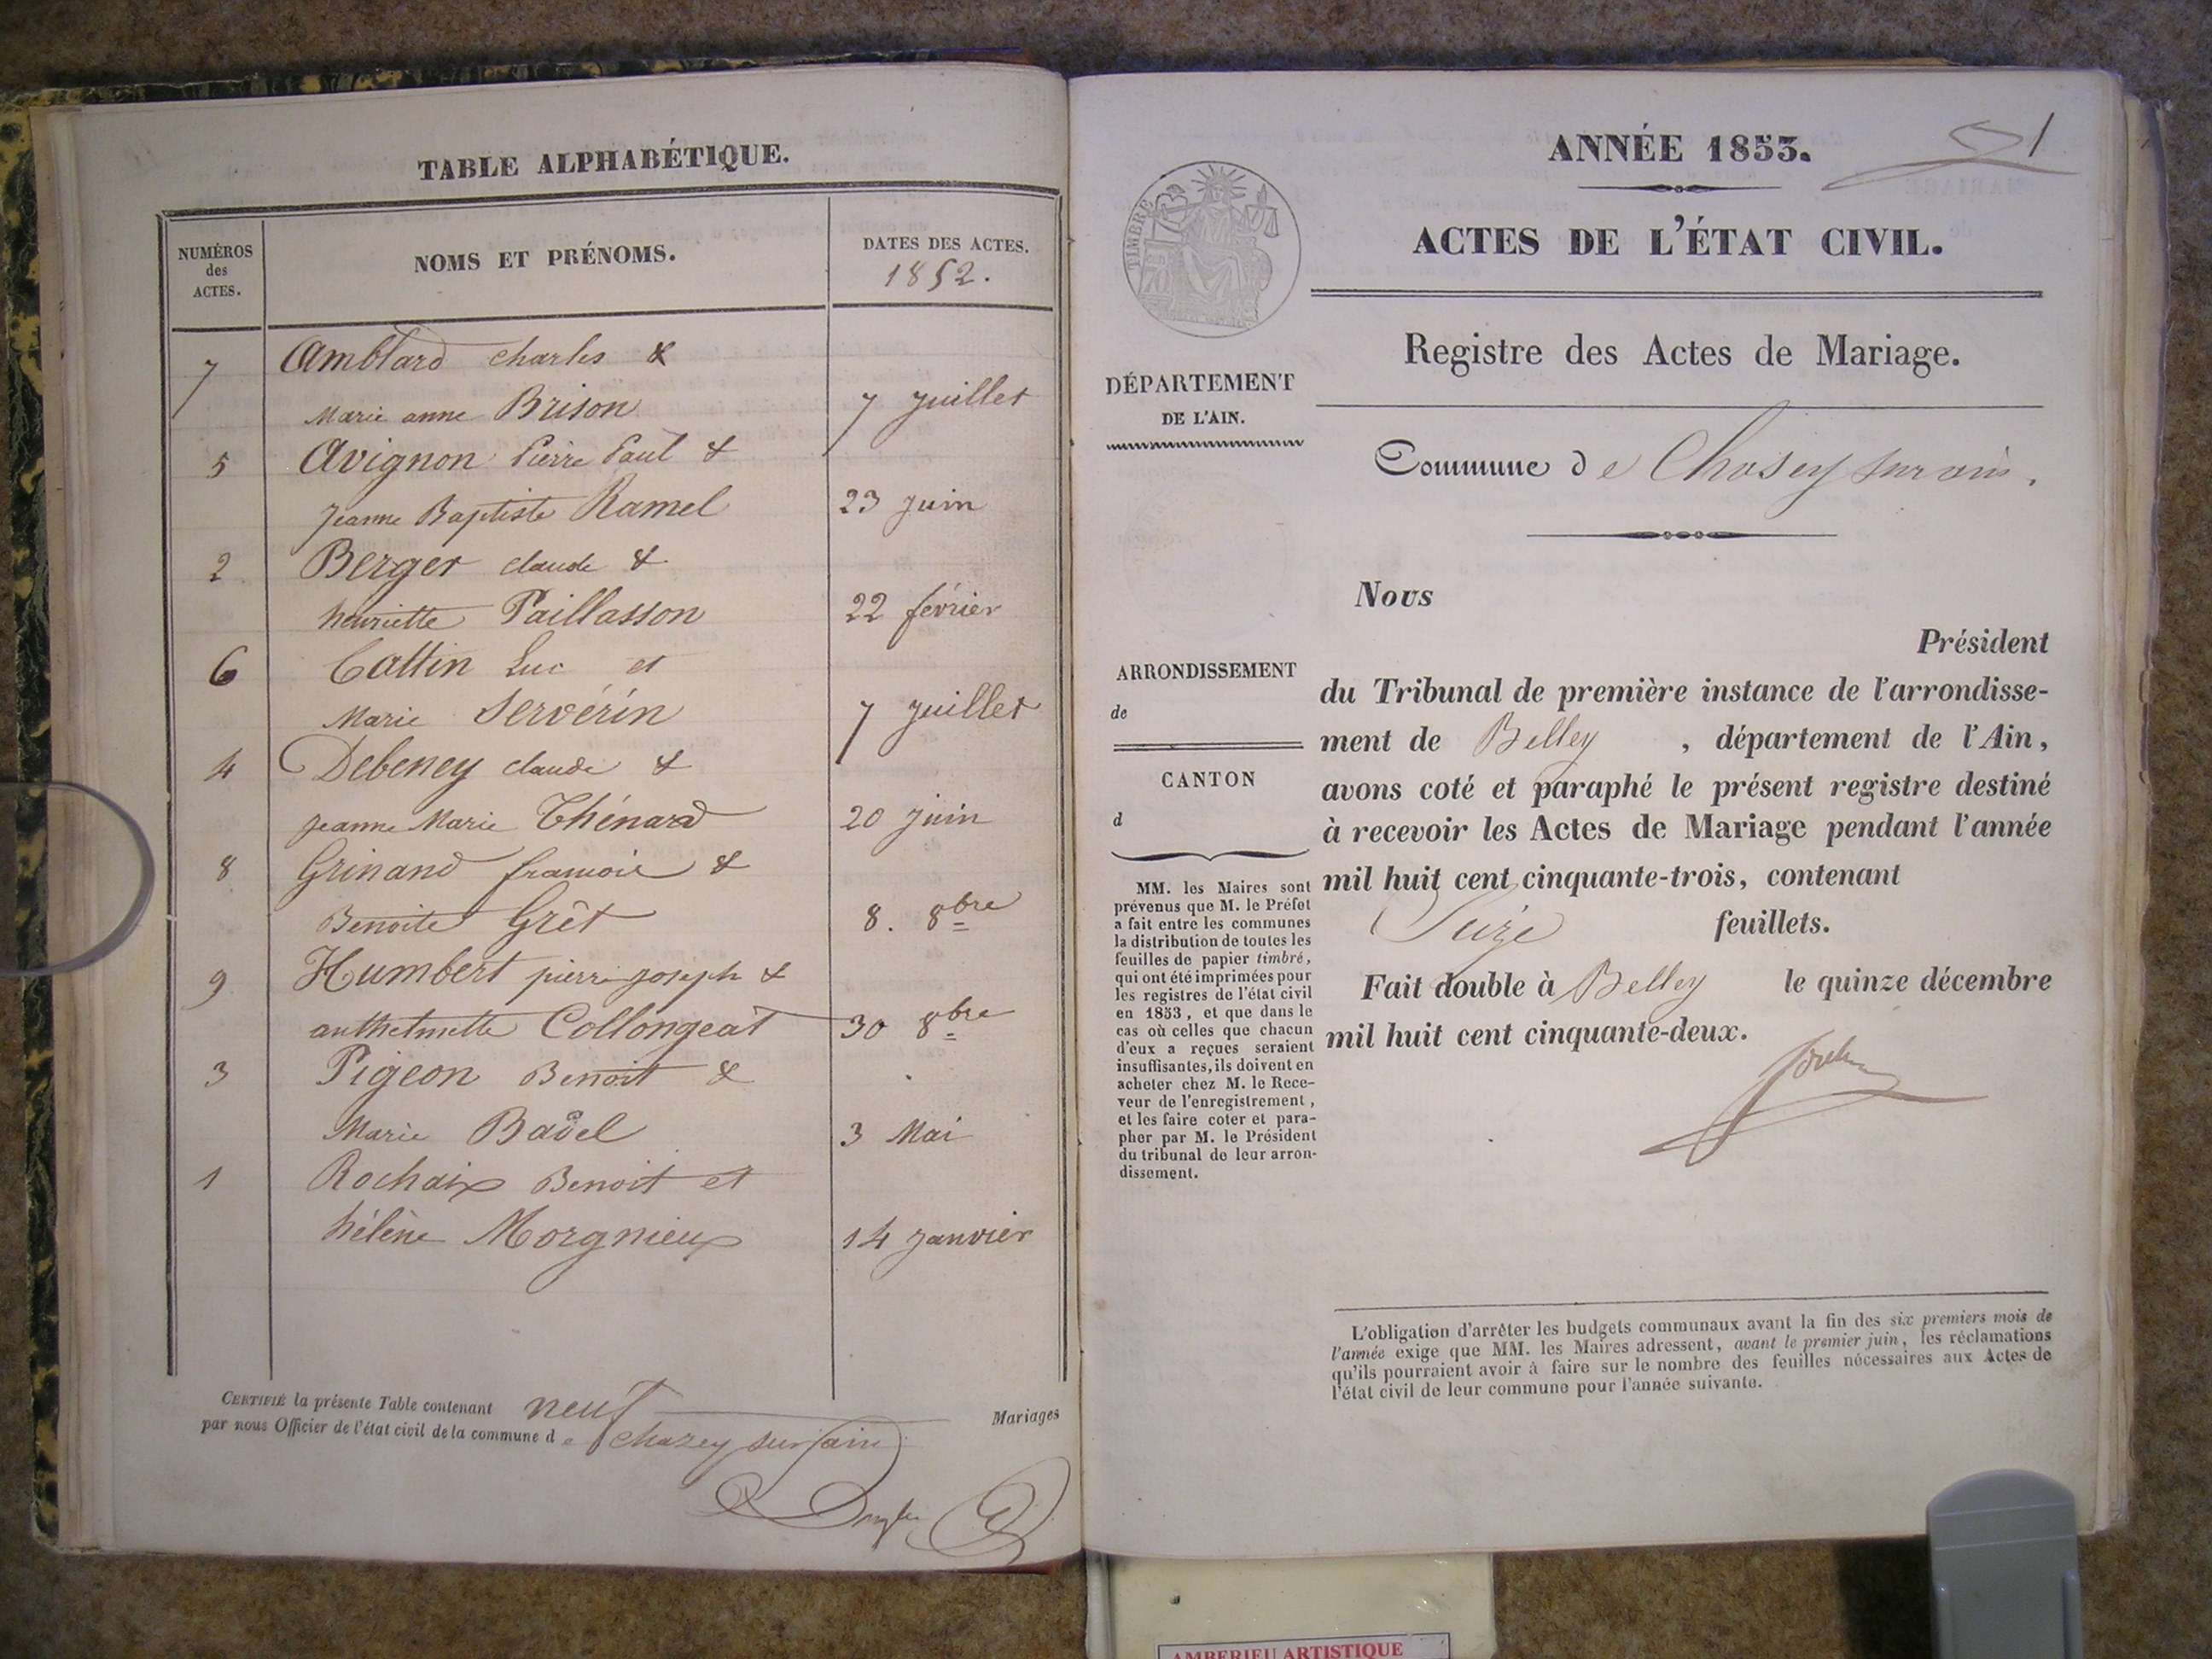 TABLE ALPHABÉTIQUE.
NUMÉROS
des
ACTES.
NOMS ET PRÉNOMS.
DATES DES ACTES.
1852.
7 Amblard charles &
Marie anne Brison 7 juillet
5 Avignon Pierre Paul &
Jeanne Baptiste Ramel 23 juin
2 Berger claude &
henriette Paillasson 22 février
6 Cattin Luc et
Marie Servérin 7 juillet
4 Debeney claude &
jeanne Marie Thénard 20 juin
8 Grinand francois &
Benoite Grêt 8. 8bre
9 Humbert pierre joseph &
anthelmette Collongeat 30 8bre
3 Pigeon Benoit &
Marie Badel 3 Mai
1 Rochaix Benoit et
hélène Morgnieux 14 janvier
CERTIFIÉ la présente Table contenant neuf Mariages
par nous Officier de l'état civil de la commune de chazey sur ain
1
ANNÉE 1853.
TIMBRE
ACTES DE L'ÉTAT CIVIL.
Registre des Actes de Mariage.
DÉPARTEMENT
DE L'AIN.
Commune de Chasey sur ain.
Nous
Président
ARRONDISSEMENT
de
CANTON
d
du Tribunal de première instance de l'arrondisse-
ment de Belley , département de l'Ain,
avons coté et paraphé le présent registre destiné
à recevoir les Actes de Mariage pendant l'année
mil huit cent cinquante-trois, contenant
Seize feuillets.
Fait double à Belley le quinze décembre
mil huit cent cinquante-deux.
MM. les Maires sont
prévenus que M. le Préfet
a fait entre les communes
la distribution de toutes les
feuilles de papier timbré,
qui ont été imprimées pour
les registres de l'état civil
en 1853, et que dans le
cas où celles que chacun
d'eux a reçues seraient
insuffisantes, ils doivent en
acheter chez M. le Rece-
veur de l'enregistrement,
et les faire coter et para-
pher par M. le Président
du tribunal de leur arron-
dissement.
L'obligation d'arrêter les budgets communaux avant la fin des six premiers mois de
l'année exige que MM. les Maires adressent, avant le premier juin, les réclamations
qu'ils pourraient avoir à faire sur le nombre des feuilles nécessaires aux Actes de
l'état civil de leur commune pour l'année suivante.
AMBERIEU ARTISTIQUE